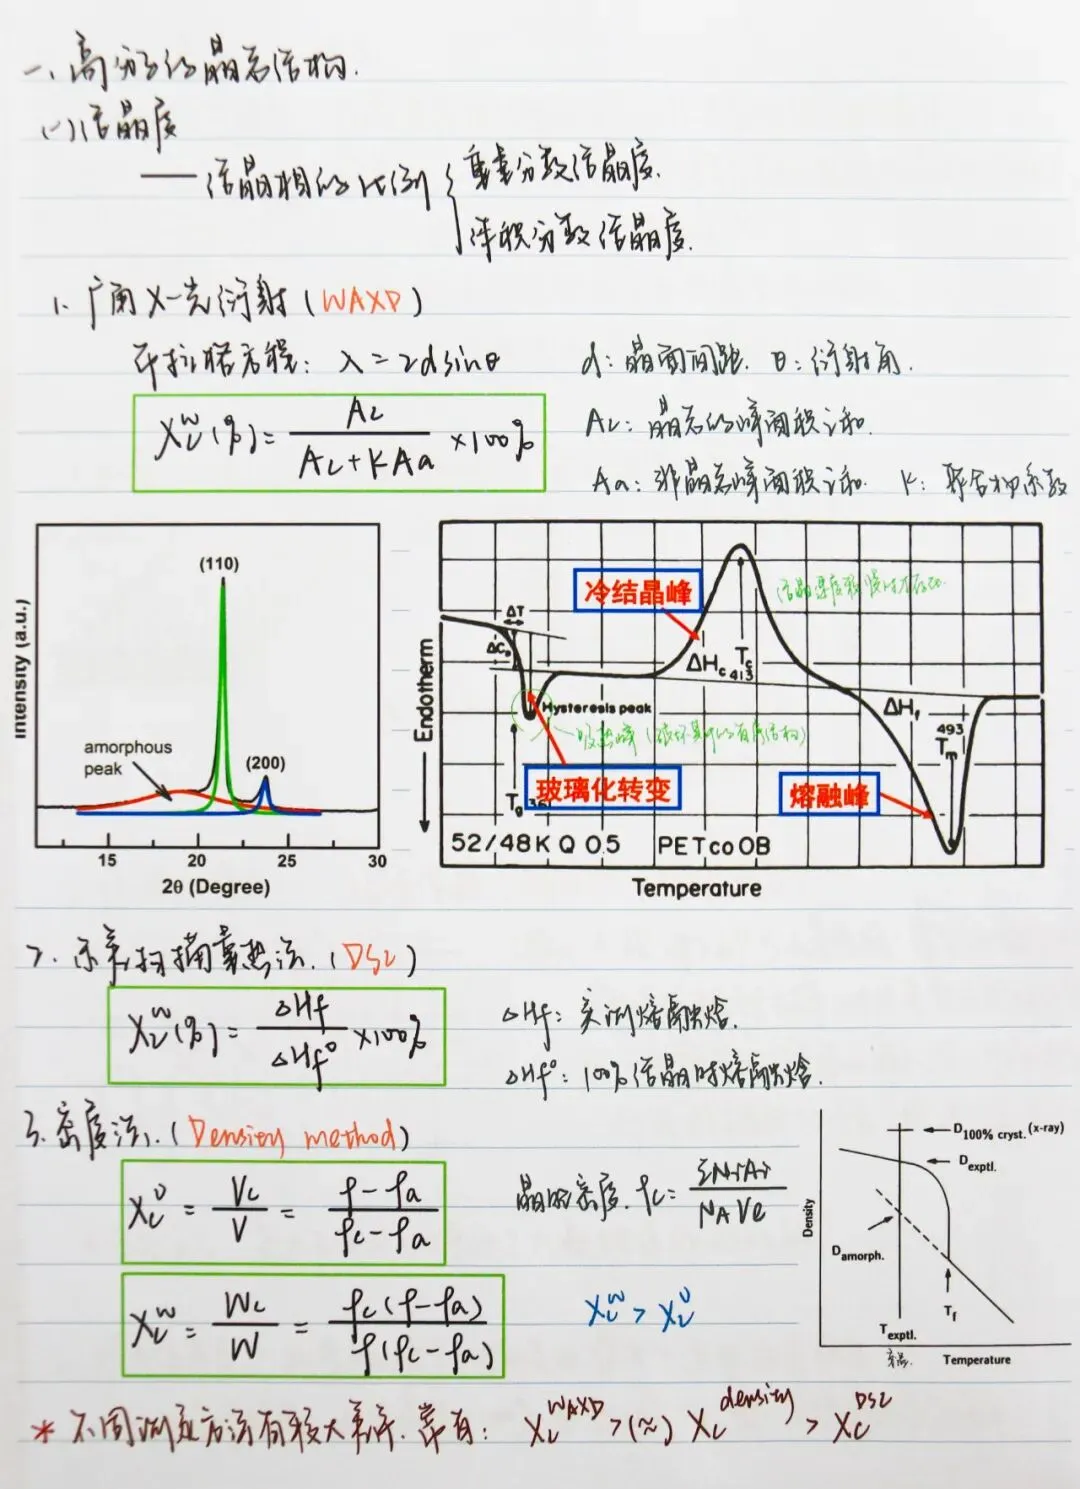 一、高分子的晶态结构.
(一)结晶度
——结晶相的比例
重量分数结晶度.
体积分数结晶度.
1. 广角X-光衍射(WAXD)
布拉格方程: λ=2dsinθ d:晶面间距. θ:衍射角.
Xcʷ(%)= Ac / (Ac+KAa) ×100%
Ac:晶态的峰面积之和.
Aa:非晶态峰面积之和. K:聚合物系数
Intensity (a.u.)
(110)
(200)
amorphous
peak
15 20 25 30
2θ (Degree)
Endotherm
冷结晶峰
ΔT
ΔCp
ΔHc
Tc
413
Hysteresis peak
吸热峰
玻璃化转变
Tg 361
ΔHf
493
Tm
熔融峰
52/48K Q 05 PETcoOB
Temperature
2. 示差扫描量热法.(DSC)
Xcʷ(%)= ΔHf / ΔHf⁰ ×100%
ΔHf: 实测熔融焓.
ΔHf⁰: 100%结晶时熔融焓.
3. 密度法.(Density method)
Xcᵛ = Vc / V = (ρ-ρa) / (ρc-ρa)
晶胞密度. ρc= ΣNiAi / NAVe
Xcʷ = Wc / W = ρc(ρ-ρa) / ρ(ρc-ρa)
Xcʷ > Xcᵛ
Density
D100% cryst. (x-ray)
Dexptl.
Damorph.
Tf
Texptl.
室温.
Temperature
* 不同测定方法有较大差异. 常有: Xc^WAXD >(≈) Xc^density > Xc^DSC